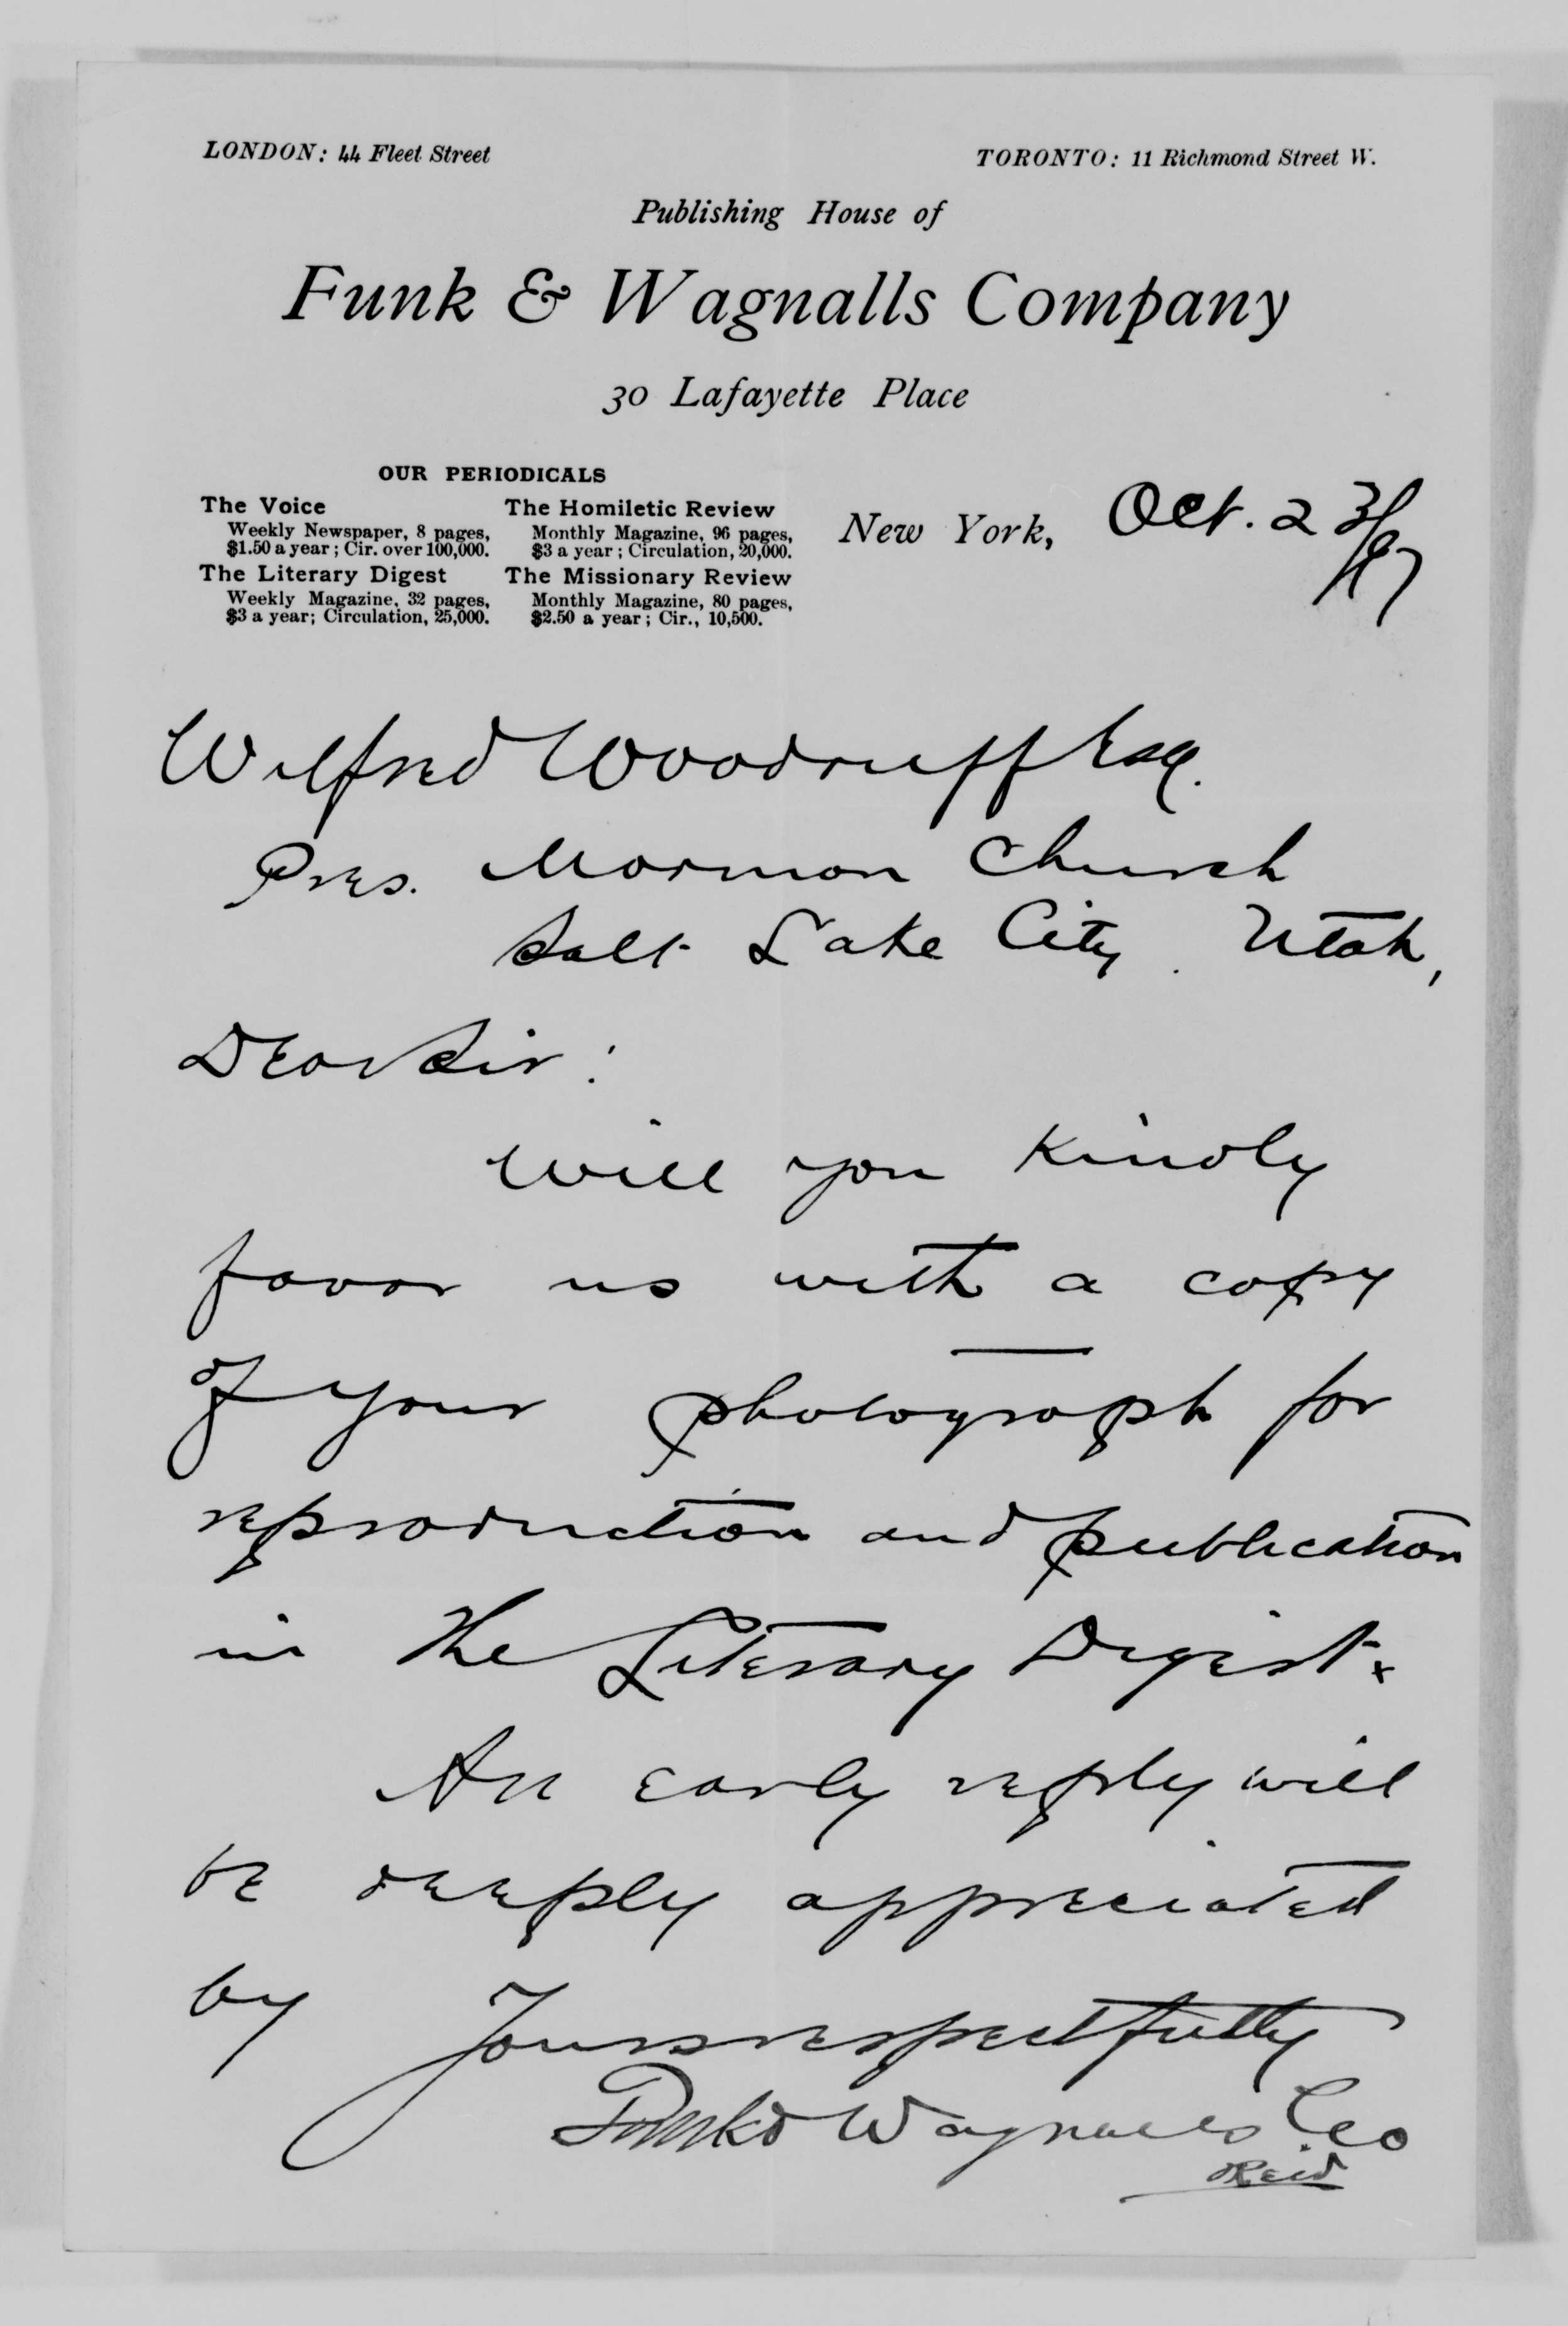 LONDON: 44 Fleet Street
TORONTO: 11 Richmond Street W.
Publishing House of
Funk & Wagnalls Company
30 Lafayette Place
OUR PERIODICALS
The Voice
Weekly Newspaper, 8 pages,
$1.50 a year; Cir. over 100,000.
The Literary Digest
Weekly Magazine, 32 pages,
$3 a year; Circulation, 25,000.
The Homiletic Review
Monthly Magazine, 96 pages,
$3 a year; Circulation, 20,000.
The Missionary Review
Monthly Magazine, 80 pages,
$2.50 a year; Cir., 10,500.
New York, Oct. 23/97
Wilfred Woodruff Esq.
Pres. Mormon Church
Salt Lake City. Utah,
Dear Sir:
Will you kindly
favor us with a copy
of your photograph for
reproduction and publication
in the Literary Digest.
An early reply will
be deeply appreciated
by Yours respectfully
Funk & Wagnalls Co
Reid